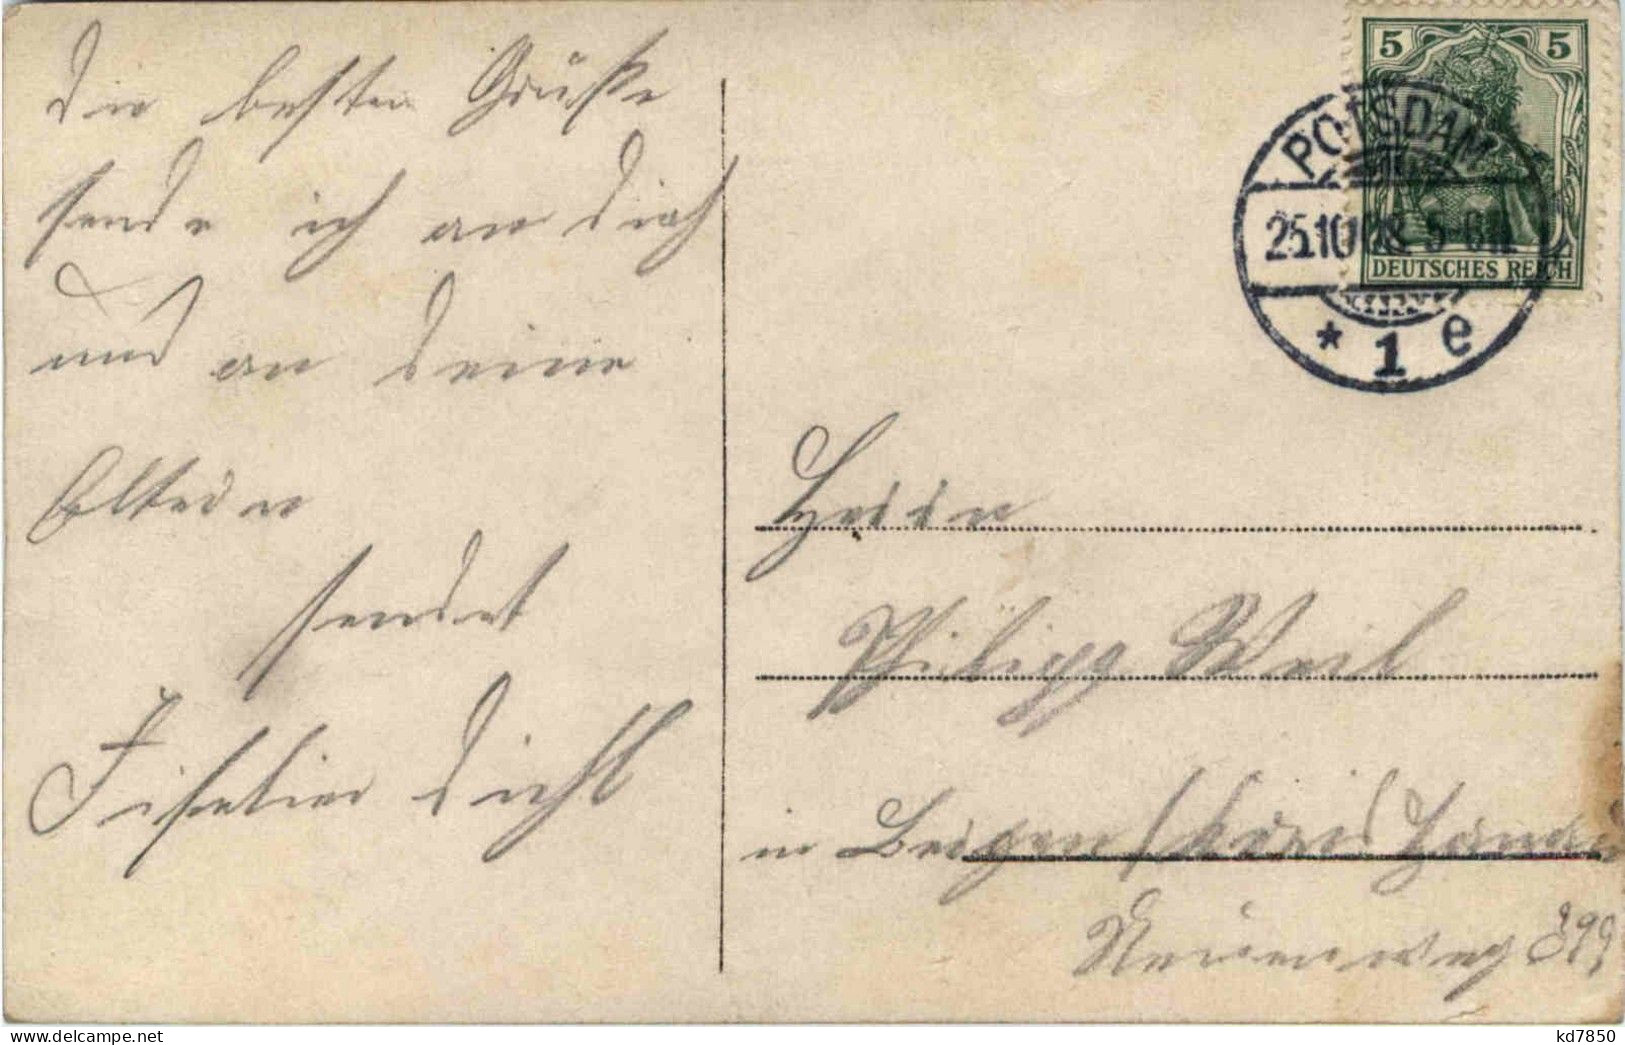 Die besten Grüße
sende ich an dich
und an deine
Eltern
sendet
Diehl
5 5
DEUTSCHES REICH
POTSDAM
25.10. 5-6N
* 1 e
Herrn
Philipp Weil
in (Kreis Hanau
Neuenweg
kd7850